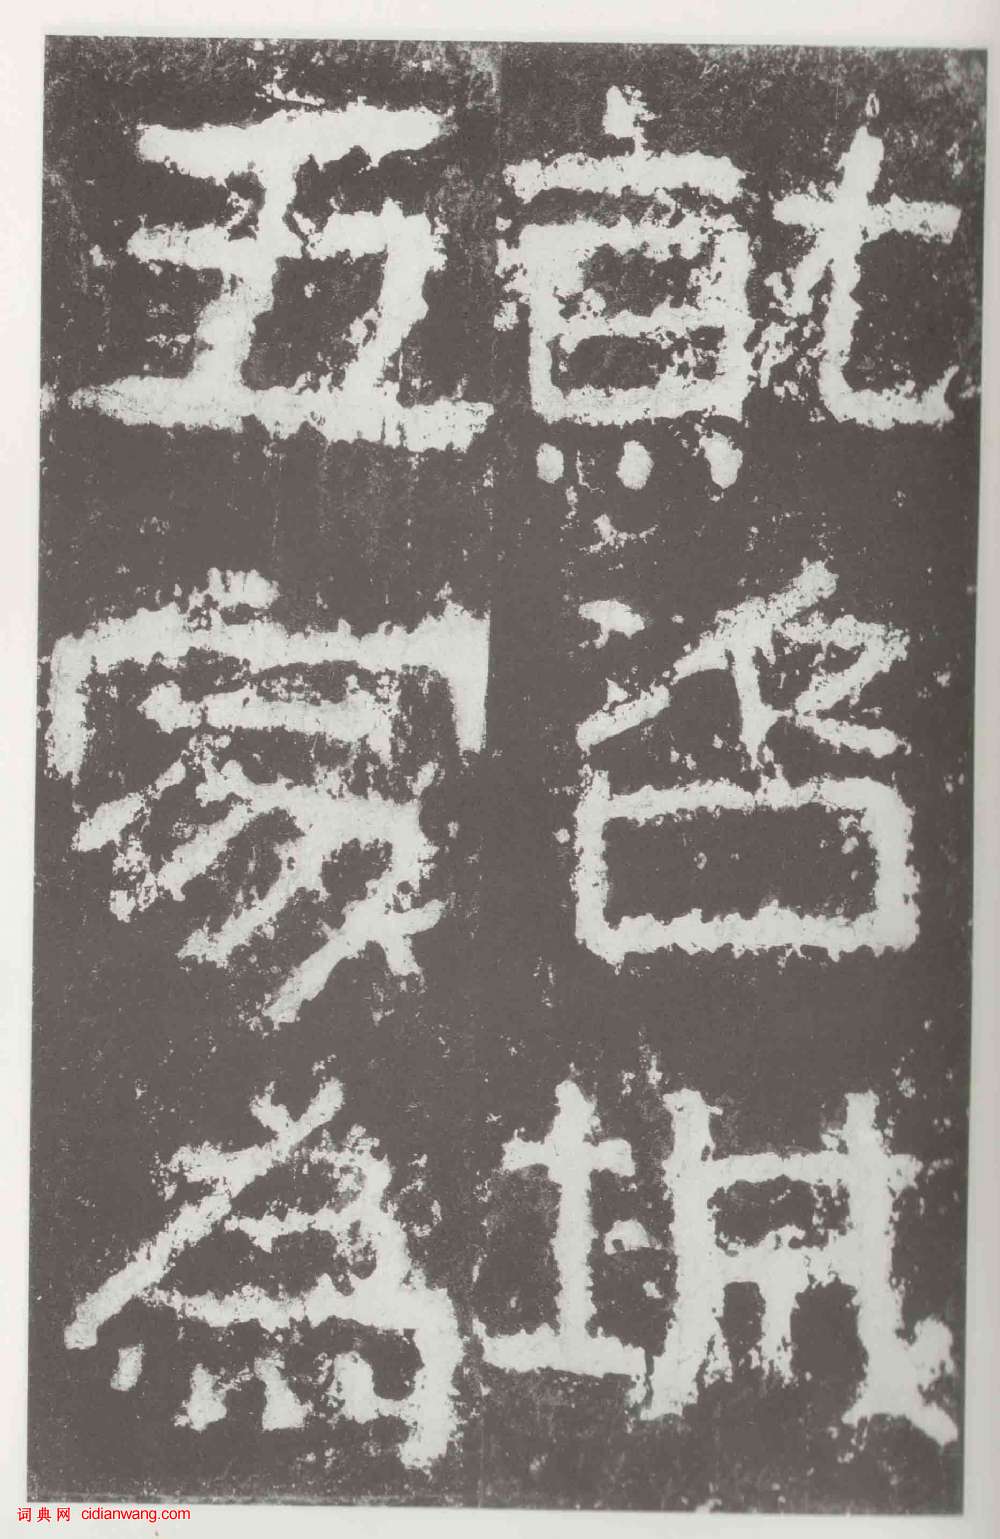 就咨城
五家為
词典网 cidianwang.com